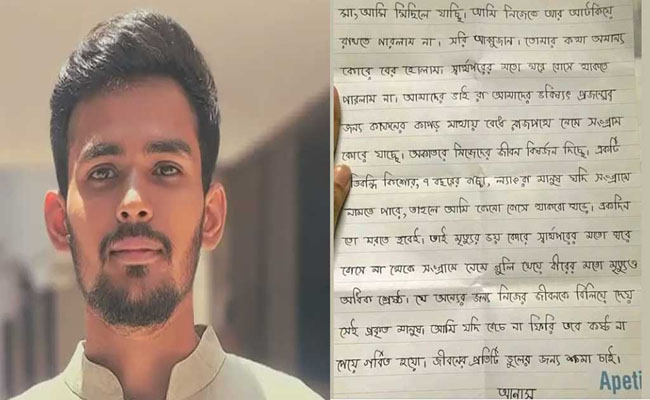 মা, আমি মিছিলে যাচ্ছি। আমি নিজেকে আর আটকিয়ে
রাখতে পারলাম না। সরি আব্বুজান। তোমার কথা অমান্য
কোরে বের হোলাম। স্বার্থপরের মতো ঘরে বোসে থাকতে
পারলাম না। আমাদের ভাই রা আমাদের ভবিষ্যৎ প্রজন্মের
জন্য কাফনের কাপড় মাথায় বেধে রাজপথে নেমে সংগ্রাম
কোরে যাচ্ছে। অকাতরে নিজেদের জীবন বিষর্জন দিচ্ছে। একটি
তিবন্ধি কিশোর, ৭ বছরের বাচ্চা, ল্যাংরা মানুষ যদি সংগ্রামে
নামতে পারে, তাহলে আমি কেনো বোসে থাকবো ঘড়ে। একদিন
তো মরতে হবেই। তাই মৃত্যুর ভয় কোরে স্বার্থপরের মতো ঘরে
বোসে না থেকে সংগ্রামে নেমে গুলি খেয়ে বীরের মতো মৃত্যুও
অধিক শ্রেষ্ঠ। যে অন্যের জন্য নিজের জীবনকে বিলিয়ে দেয়
সেই প্রকৃত মানুষ। আমি যদি বেচে না ফিরি তবে কষ্ট না
পেয়ে গর্বিত হয়ো। জীবনের প্রতিটি ভুলের জন্য ক্ষমা চাই।
আনাস
Apeti